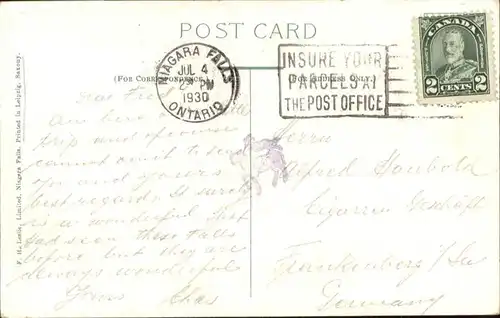 POST CARD
(FOR CORRESPONDENCE.)
(FOR ADDRESS ONLY.)
NIAGARA FALLS
JUL 4
PM
1930
ONTARIO
INSURE YOUR
PARCELS AT
THE POST OFFICE
CANADA
2 CENTS 2
F. H. Leslie, Limited, Niagara Falls. Printed in Leipzig, Saxony.
Dear
Am here on
trip and of course
cannot omit to send
you and yours
best regards. It surely
is a wonderful
Had seen these Falls
before but they are
always wonderful
Yours Chas
Herrn
Alfred Haubold
Cigarren Geschäft
Frankenberg i/Sa
Germany